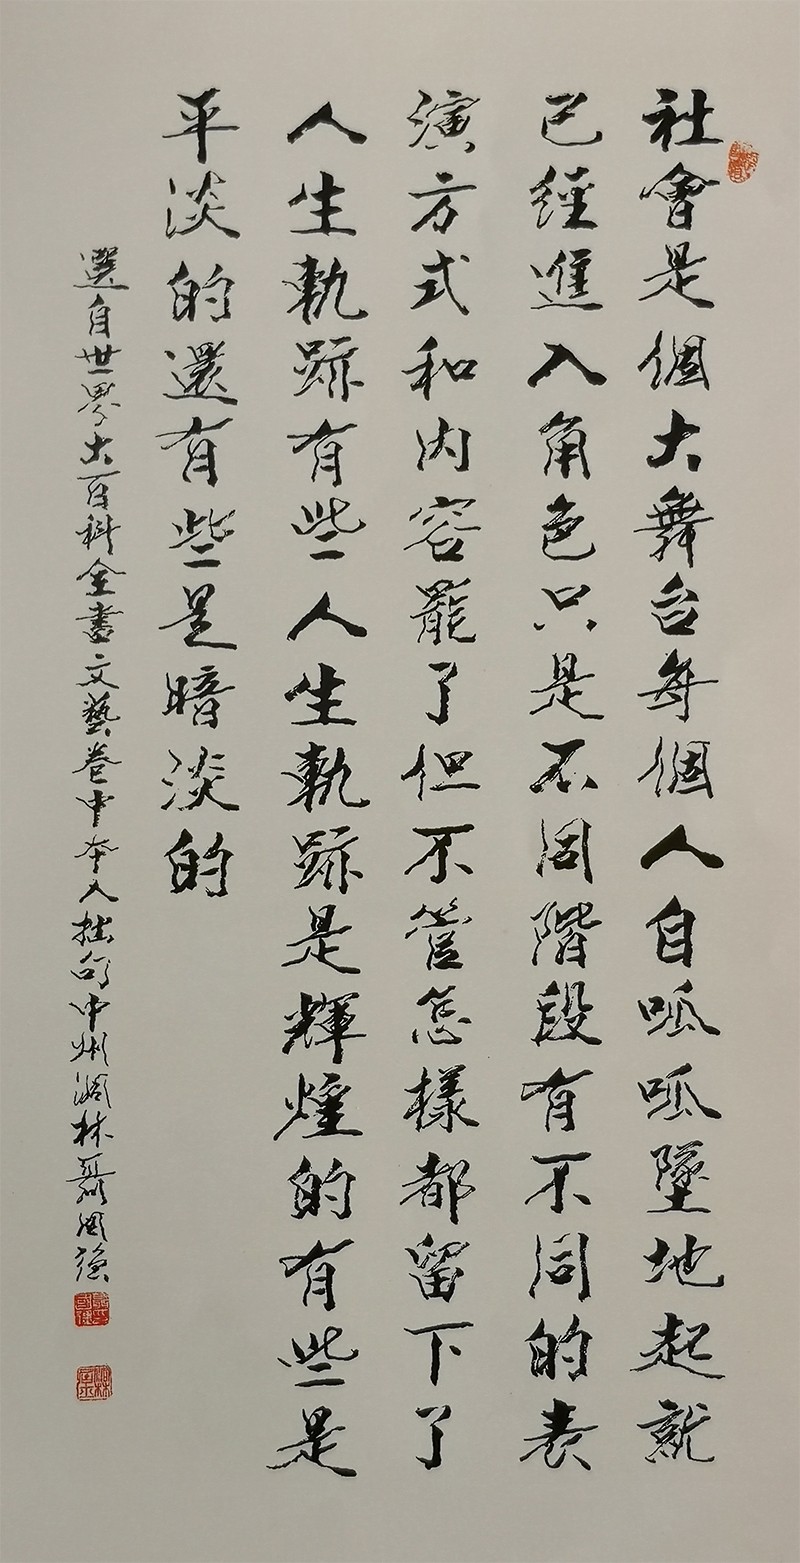 社會是個大舞台每個人自呱呱墜地起就
已經進入角色只是不同階段有不同的表
演方式和内容罷了但不管怎樣都留下了
人生軌跡有些人生軌跡是輝煌的有些是
平淡的還有些是暗淡的
選自世界大百科全書文藝卷中本人拙句中州潁林聶國強